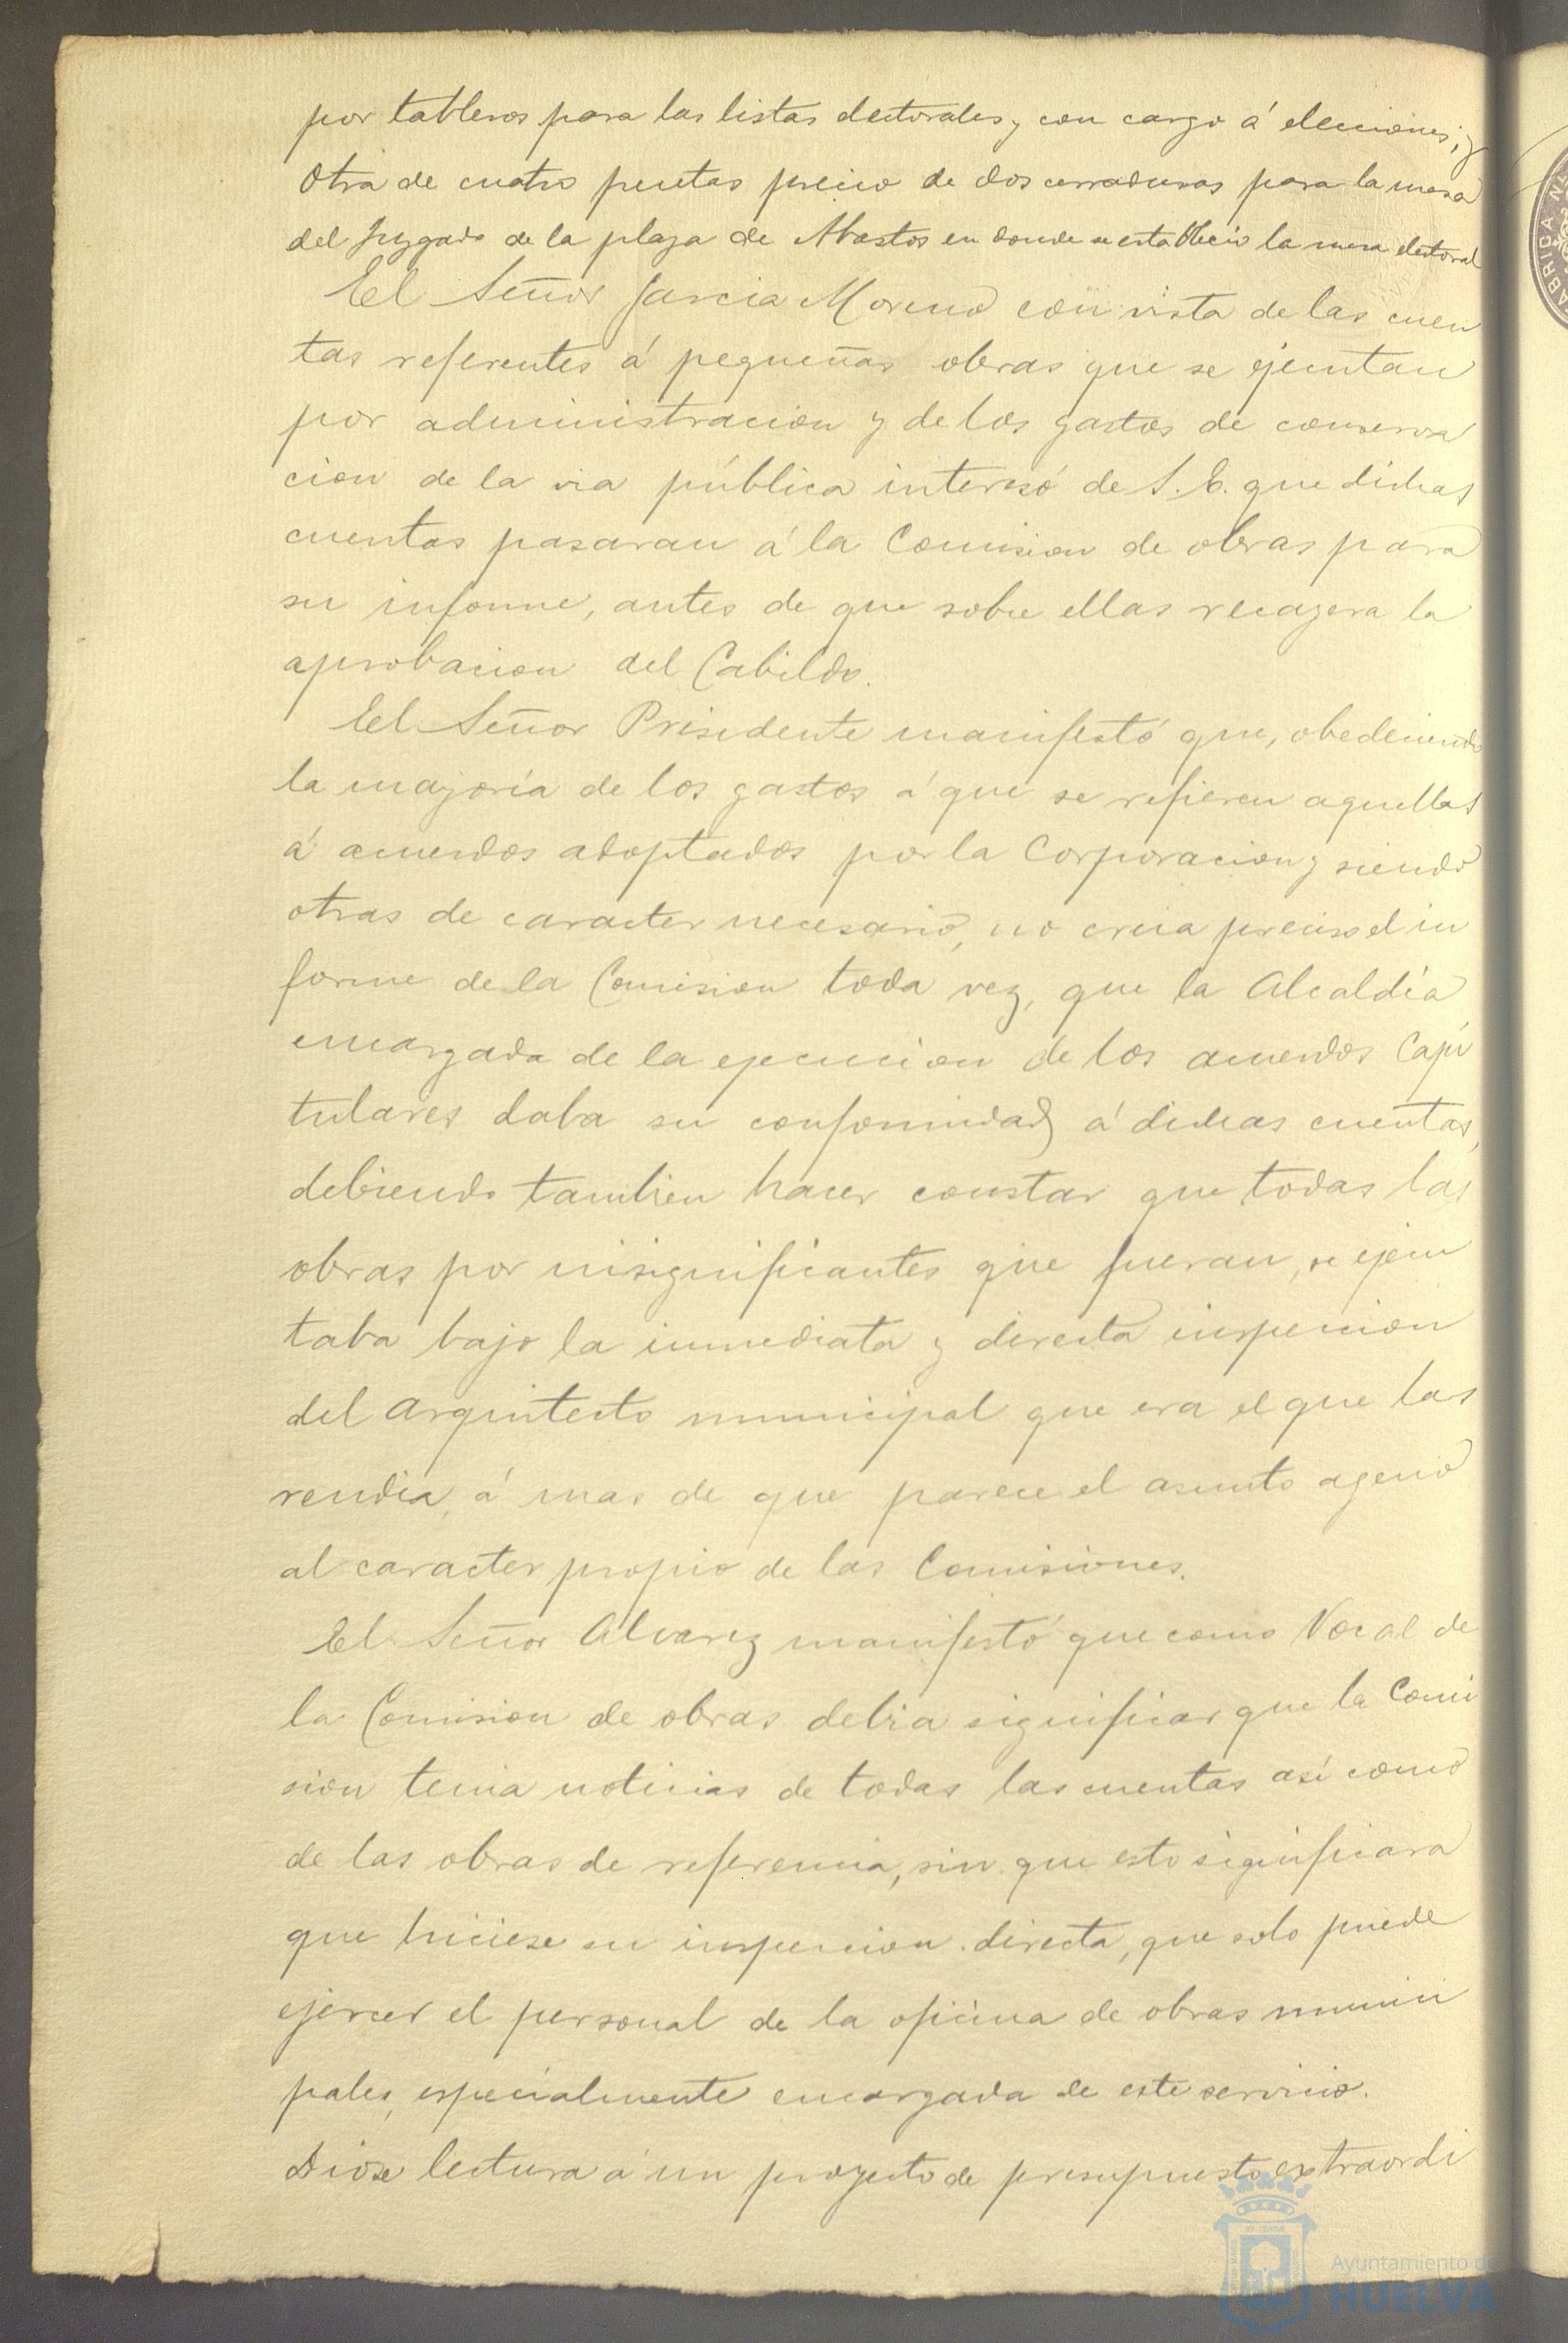 por tableros para las listas electorales, con cargo á elecciones; y
otra de cuatro pesetas precio de dos cerraduras para la mesa
del Juzgado de la plaza de Abastos en donde se estableció la mesa electoral
El Señor Garcia Moreno con vista de las cuen
tas referentes á pequeñas obras que se ejecutan
por administracion y de los gastos de conserva
cion de la via pública interesó de S. E. que dichas
cuentas pasaran á la Comision de obras para
su informe, antes de que sobre ellas recayera la
aprobacion del Cabildo.
El Señor Presidente manifestó que, obedeciendo
la mayoría de los gastos á que se refieren aquellas
á acuerdos adoptados por la Corporacion y siendo
otras de caracter necesario, no creia preciso el in
forme de la Comision toda vez, que la Alcaldía
encargada de la ejecucion de los acuerdos Capi
tulares daba su conformidad á dichas cuentas,
debiendo tambien hacer constar que todas las
obras por insignificantes que fueran, se ejecu
taba bajo la inmediata y directa inspeccion
del arquitecto municipal que era el que las
rendia, á mas de que parece el asunto ageno
al caracter propio de las Comisiones.
El Señor Alvarez manifestó que como Vocal de
la Comision de obras debia significar que la Comi
sion tenia noticias de todas las cuentas así como
de las obras de referencia, sin que esto significara
que hiciese su inspeccion directa, que solo puede
ejercer el personal de la oficina de obras munici
pales, especialmente encargada de este servicio.
Diose lectura á un proyecto de presupuesto extraordi
Ayuntamiento de
HUELVA